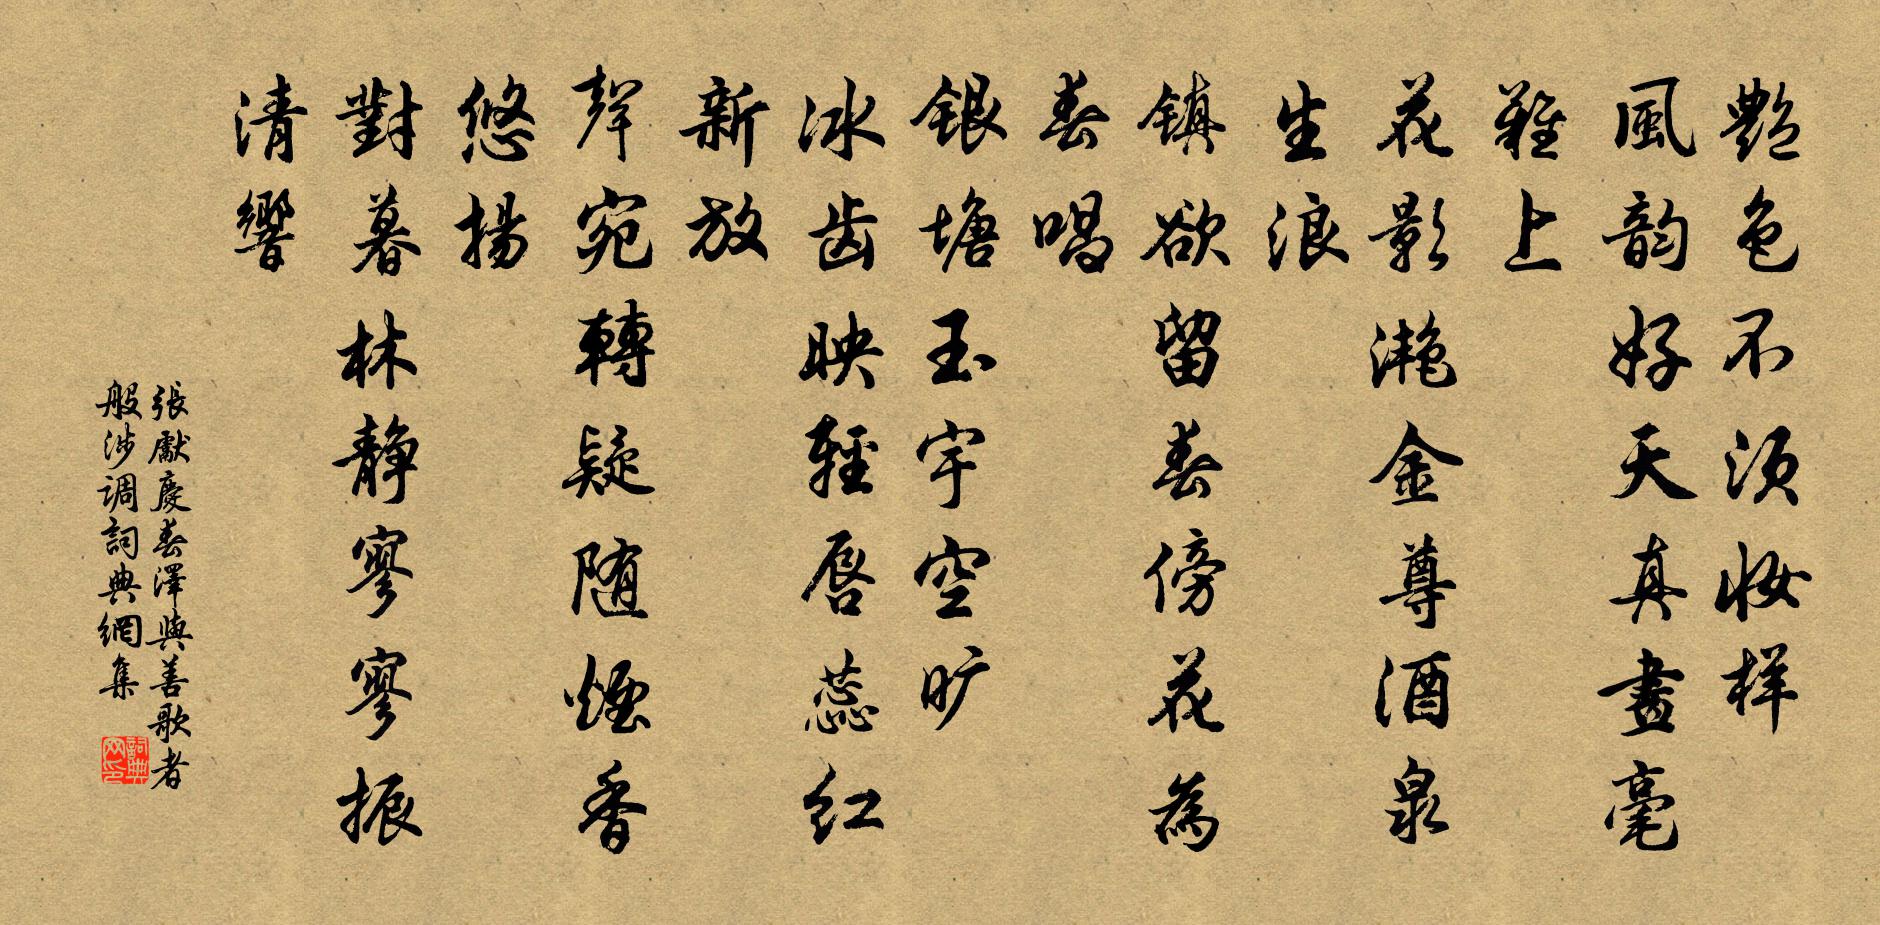 艷色不须妝样
風韵好天真畫毫
難上
花影滟金尊酒泉
生浪
镇欲留春傍花為
春唱
銀塘玉宇空旷
冰齿映輕唇蕊红
新放
聲宛轉疑随煙香
悠揚
對暮林静寥寥振
清響
張獻慶春澤與善歌者
般涉调詞典網集
詞典网印